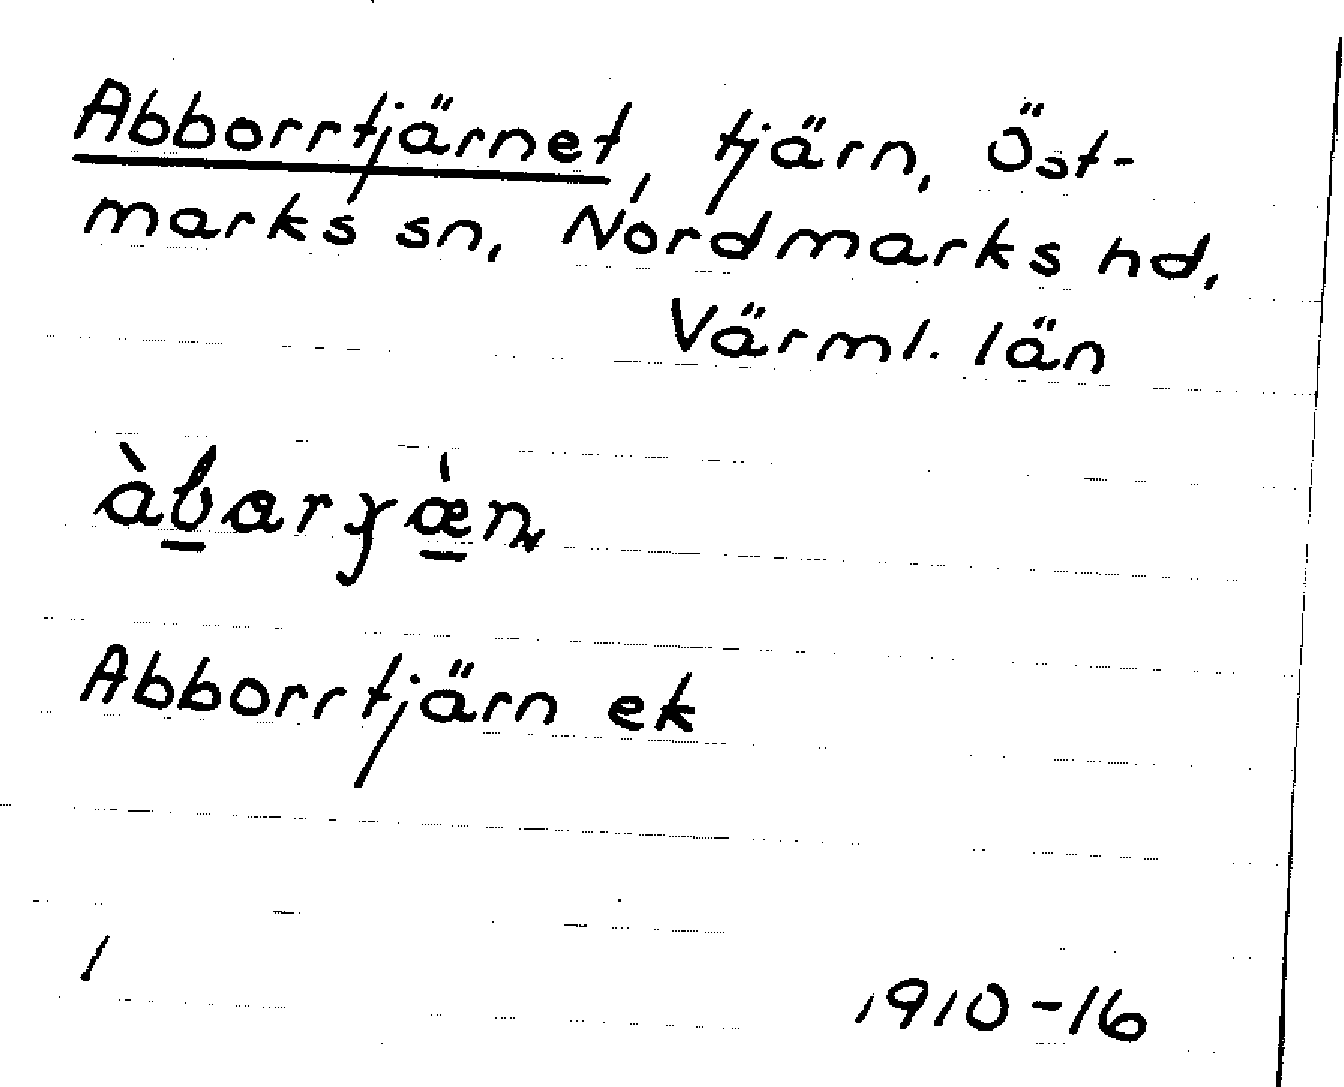 Abborrtjärnet, tjärn, Öst-
marks sn, Nordmarks hd,
Värml. län
Abborrtjärn ek
1
1910-16